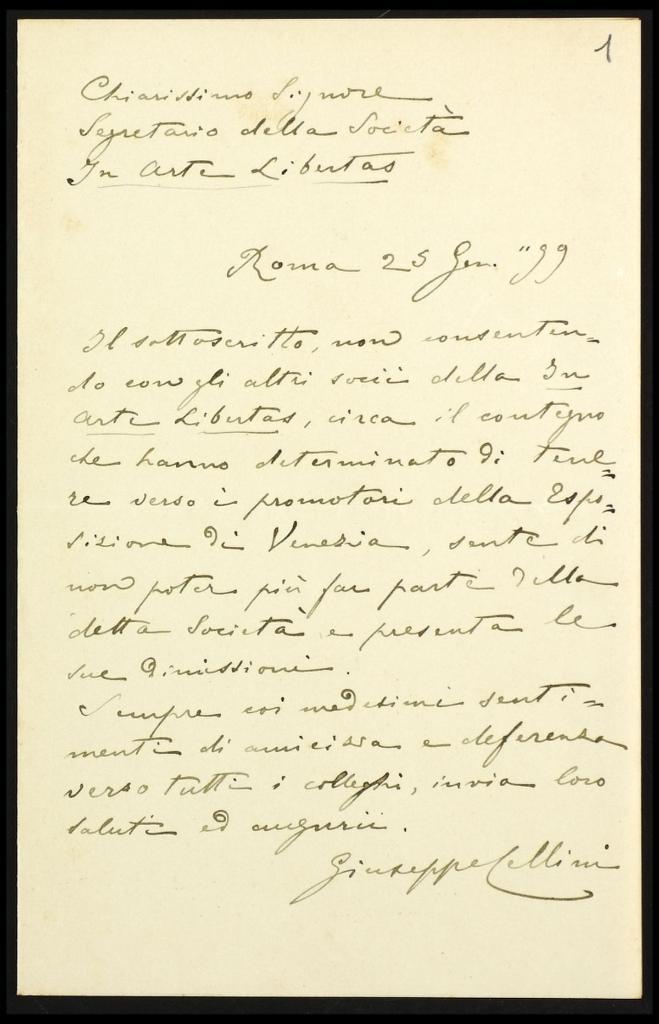 1
Chiarissimo Signore
Segretario della Società
In Arte Libertas
Roma 25 Gen. "99
Il sottoscritto, non consenten=
do con gli altri socii della In
Arte Libertas, circa il contegno
che hanno determinato di tene=
re verso i promotori della Espo=
sizione di Venezia, sente di
non poter più far parte della
detta Società e presenta le
sue dimissioni.
Sempre coi medesimi senti=
menti di amicizia e deferenza
verso tutti i colleghi, invia loro
saluti ed augurii.
Giuseppe Cellini